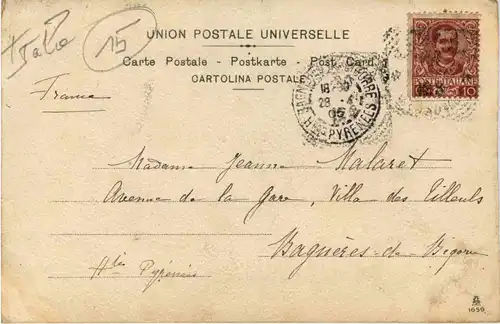 Italie
15
UNION POSTALE UNIVERSELLE
Carte Postale - Postkarte - Post Card
CARTOLINA POSTALE
POSTE ITALIANE
10
BAGNERES-DE-BIGORRE
18-30
28 -4
05
HTES PYRENEES
France
Madame Jeanne Malaret
Avenue de la Gare, Villa des Tilleuls
Bagnères-de-Bigorre
Htes Pyrénées
1650